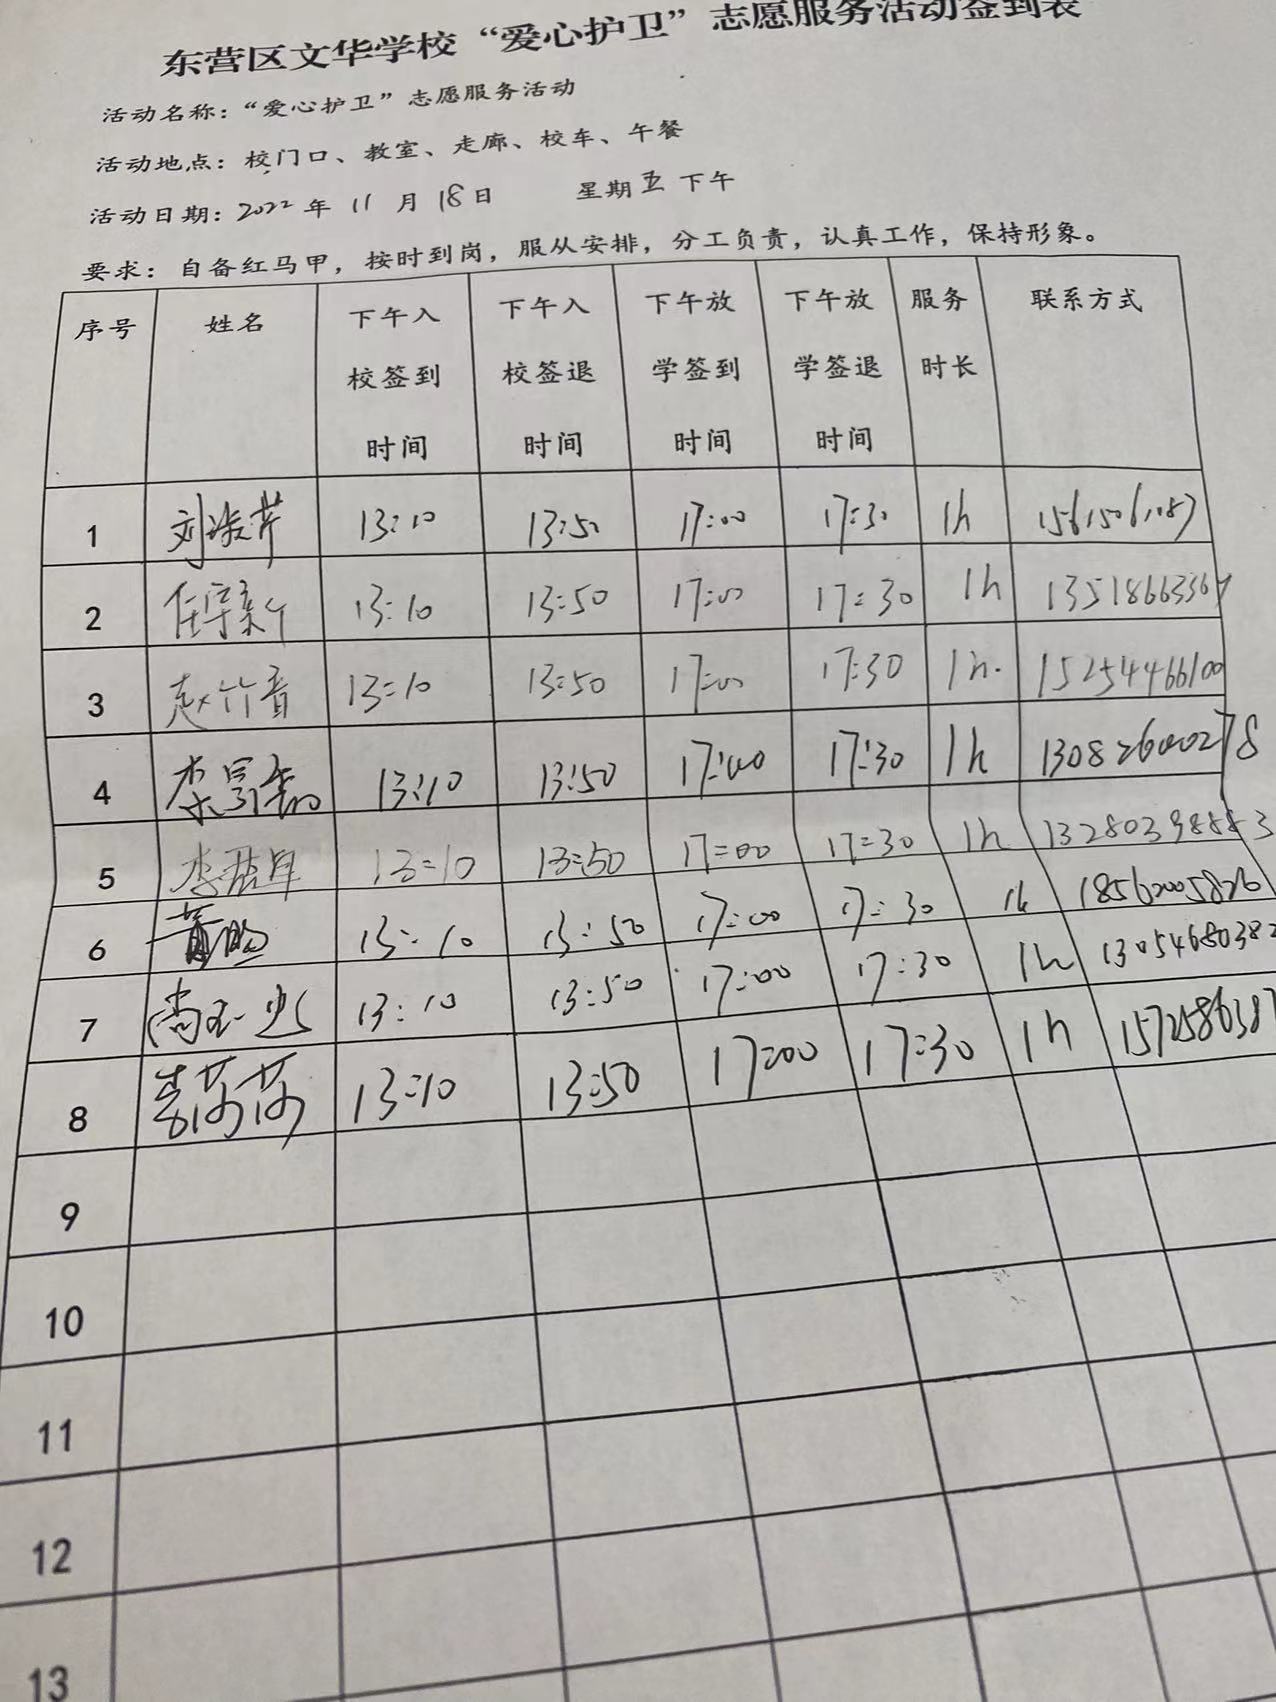 东营区文华学校“爱心护卫”志愿服务活动签到表
活动名称：“爱心护卫”志愿服务活动
活动地点：校门口、教室、走廊、校车、午餐
活动日期：2022年11月18日 星期五下午
要求：自备红马甲，按时到岗，服从安排，分工负责，认真工作，保持形象。
序号 姓名 下午入校签到时间 下午入校签退时间 下午放学签到时间 下午放学签退时间 服务时长 联系方式
1 13:10 13:50 17:00 17:30 1h
2 13:10 13:50 17:00 17:30 1h
3 赵竹音 13:10 13:50 17:00 17:30 1h. 15254466100
4 13:10 13:50 17:00 17:30 1h 13082600278
5 13:10 13:50 17:00 17:30 1h
6 13:10 13:50 17:00 17:30 1h
7 13:10 13:50 17:00 17:30 1h
8 13:10 13:50 17:00 17:30 1h
9
10
11
12
13